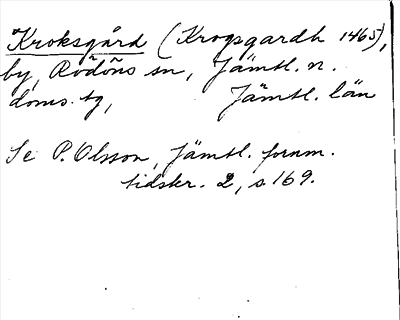 Kroksgård (Krogsgardh 1465),
by, Rödöns sn, Jämtl. n.
doms. tg, Jämtl. län
Se P. Olsson, Jämtl. fornm.
tidskr. 2, s 169.